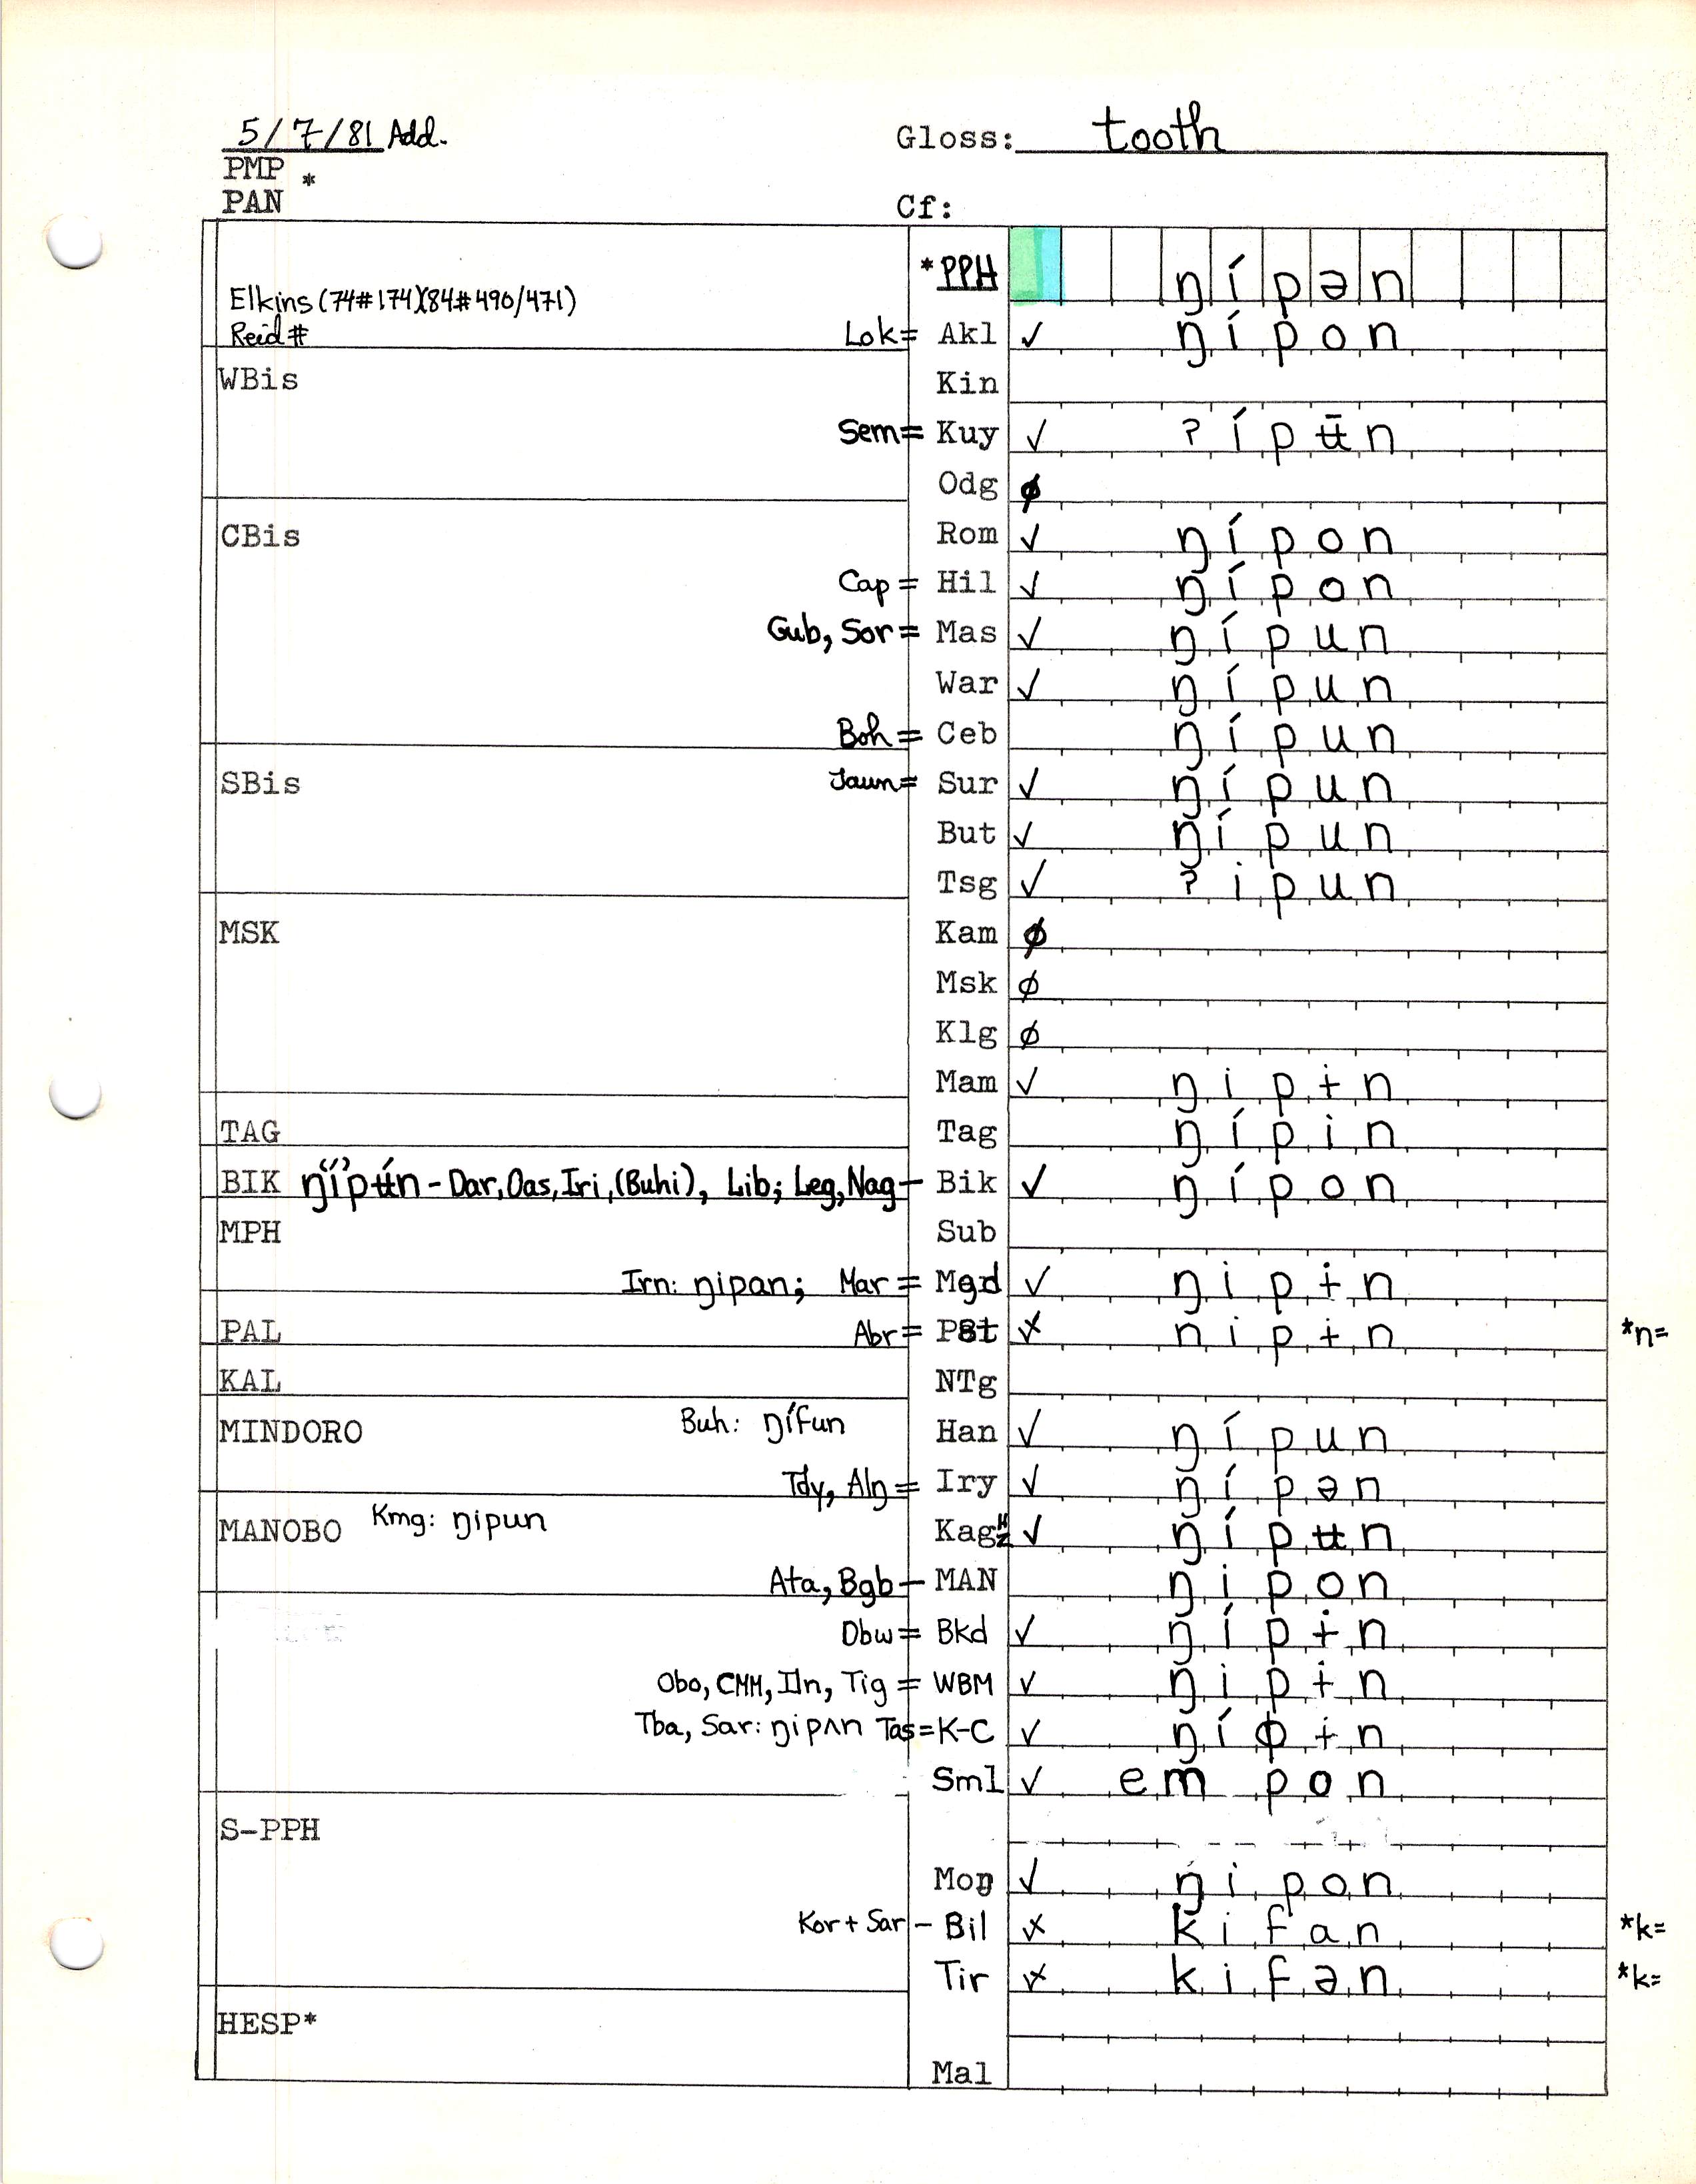 5/7/81 Add. Gloss: tooth
PMP *
PAN Cf:
*PPH ŋípən
Elkins (74#174)(84#490/471)
Reid# Lok= Akl ✓ ŋípon
WBis Kin
Sem= Kuy ✓ ʔípʉ̄n
Odg ∅
CBis Rom ✓ ŋípon
Cap = Hil ✓ ŋípon
Gub, Sor = Mas ✓ ŋípun
War ✓ ŋípun
Boh = Ceb ŋípun
SBis Jaun= Sur ✓ ŋípun
But ✓ ŋípun
Tsg ✓ ʔipun
MSK Kam ∅
Msk ∅
Klg ∅
Mam ✓ ŋipɨn
TAG Tag ŋípin
BIK ŋípʉ́n - Dar, Oas, Iri, (Buhi), Lib; Leg, Nag - Bik ✓ ŋípon
MPH Sub
Irn: ŋipan; Mar = Mgd ✓ ŋipɨn
PAL Abr= PBt x nipɨn *n=
KAL NTg
MINDORO Buh: ŋífun Han ✓ ŋípun
Tdy, Alŋ = Iry ✓ ŋípən
MANOBO Kmg: ŋipun Kag ✓ ŋípʉn
Ata, Bgb - MAN ŋipon
Dbw = Bkd ✓ ŋípɨn
Obo, CMM, Iln, Tig = WBM ✓ ŋipɨn
Tba, Sar: ŋipʌn Tas=K-C ✓ ŋíɸɨn
Sml ✓ empon
S-PPH
Moŋ ✓ ŋipon
Kor + Sar - Bil x kifan *k=
Tir x kifən *k=
HESP*
Mal